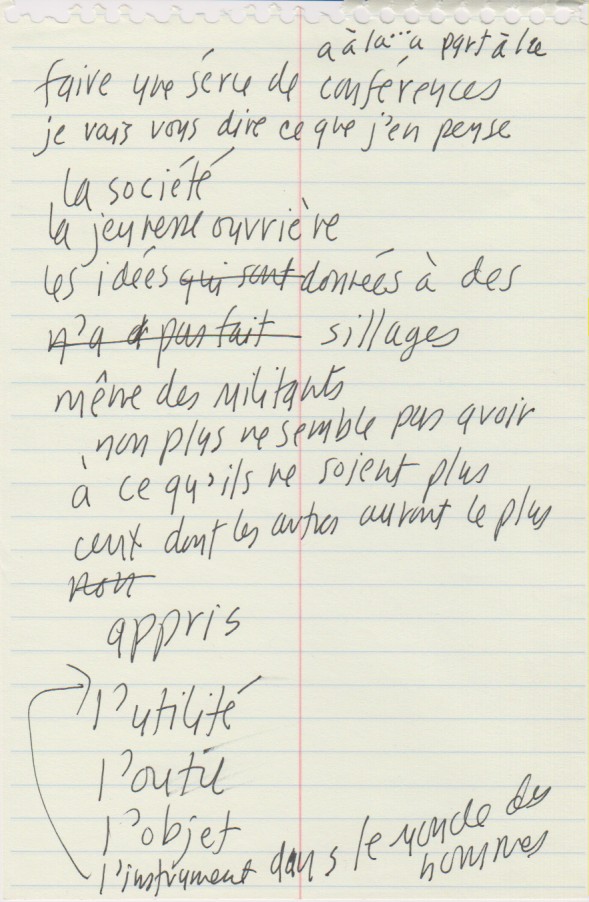 à à la...a part à la
faire une série de conférences
je vais vous dire ce que j'en pense
la société
la jeunesse ouvrière
les idées qui sont données à des
n'a pas fait sillages
même des militants
non plus ne semble pas avoir
à ce qu'ils ne soient plus
ceux dont les autres auront le plus
non
appris
l'utilité
l'outil
l'objet
l'instrument dans le monde des
hommes